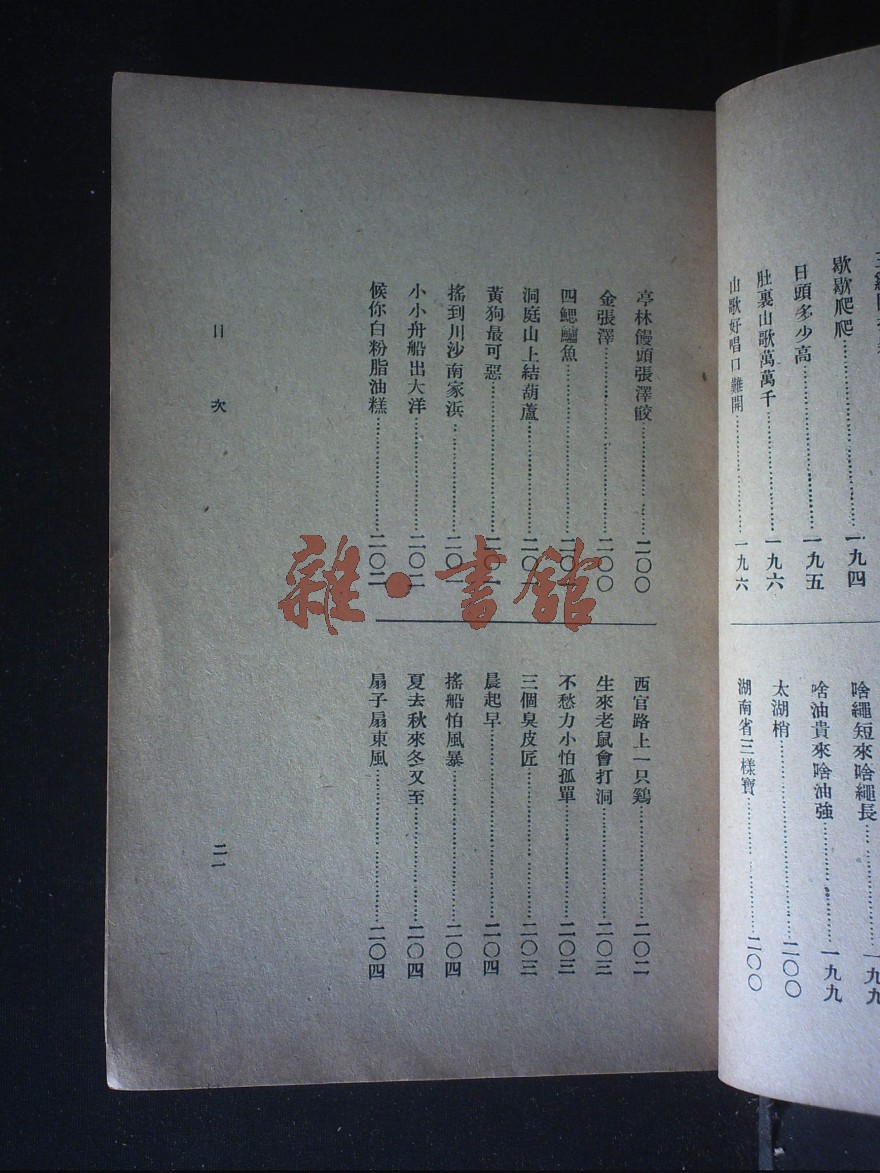 歇歇爬爬……一九四
日頭多少高……一九五
肚裏山歌萬萬千……一九六
山歌好唱口難開……一九六
啥繩短來啥繩長……一九九
啥油貴來啥油強……一九九
太湖梢……二〇〇
湖南省三樣寶……二〇〇
亭林饅頭張澤餃……二〇〇
金張澤……二〇〇
四鰓鱸魚……二〇一
洞庭山上結葫蘆……二〇一
黃狗最可惡……二〇一
搖到川沙南家浜……二〇一
小小舟船出大洋……二〇二
候你白粉脂油糕……二〇二
西官路上一只鷄……二〇二
生來老鼠會打洞……二〇三
不愁力小怕孤單……二〇三
三個臭皮匠……二〇三
晨起早……二〇四
搖船怕風暴……二〇四
夏去秋來冬又至……二〇四
扇子扇東風……二〇四
目次
二一
雜·書館